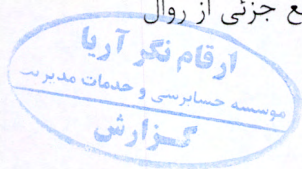 ع جزئی از روال
ارقام نگر آریا
موسسه حسابرسی و خدمات مدیریت
گزارش